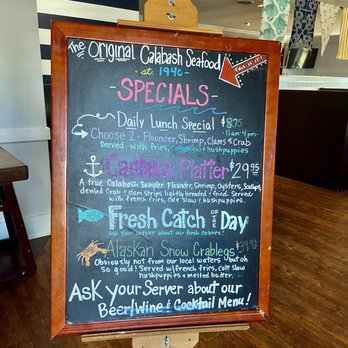 The Original Calabash Seafood
est. 1940
THIS IS IT!
SPECIALS
Daily Lunch Special $8.75
11am-4pm
Choose 2 - Flounder, Shrimp, Clams, Crab
served with fries, coleslaw & hushpuppies
Captains Platter $29.95
A true Calabash Sampler. Flounder, Shrimp, Oysters, Scallops,
deviled Crab & clam strips lightly breaded & fried. Served
with french fries, cole slaw & hushpuppies.
Fresh Catch OF THE Day
Ask your Server about our fresh catches!
Alaskan Snow Crablegs
Obviously not from our local waters but oh
so Good! Served w/french fries, cole slaw
hushpuppies & melted butter.
Ask your Server about our
Beer/Wine & Cocktail Menu!